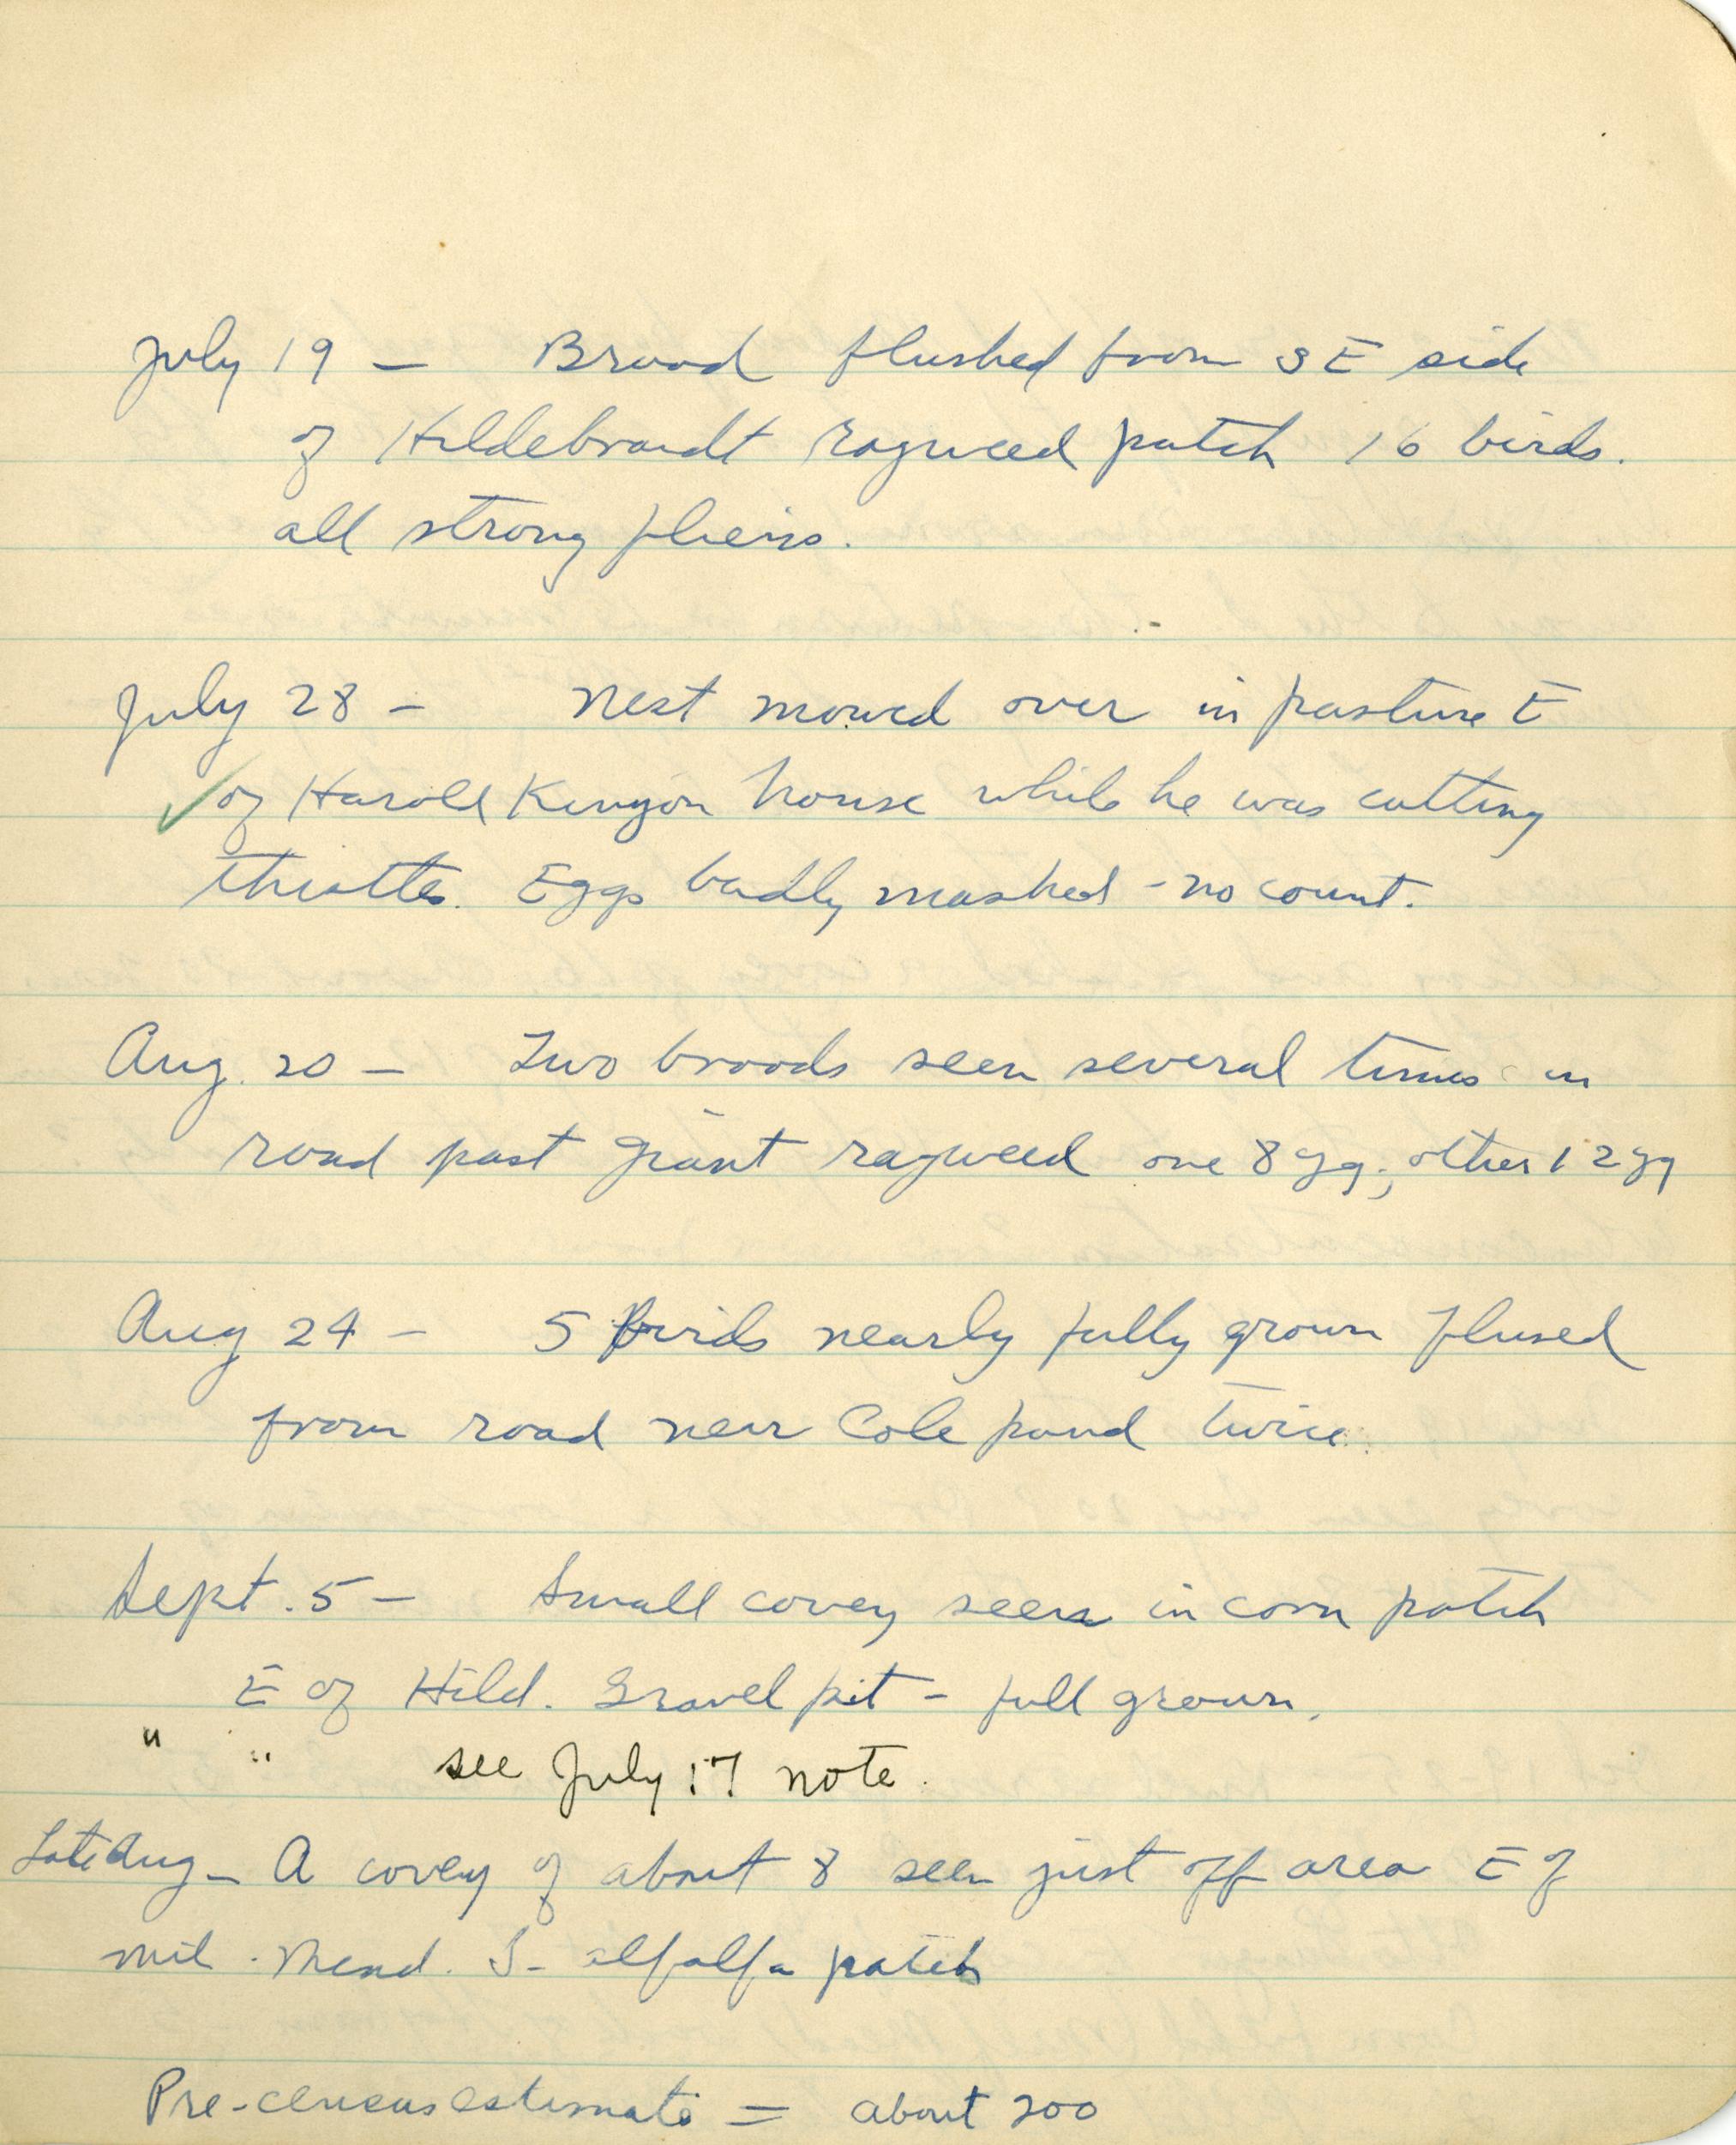 July 19 — Brood flushed from SE side
of Hildebrandt ragweed patch 16 birds.
all strong fliers.
July 28 — Nest mowed over in pasture E
✓ of Harold Kenyon house while he was cutting
thistles. Eggs badly mashed - no count.
Aug. 20 — Two broods seen several times in
road past giant ragweed one 8 yg; other 12 yg
Aug 24 — 5 birds nearly fully grown flused
from road near Cole pond twice.
Sept. 5 — Small covey seen in corn patch
E of Hild. Gravel pit - full grown.
" " see July 17 note.
Late Aug — A covey of about 8 seen just off area E of
mil. Mend. S- alfalfa patch
Pre-census estimate = about 200